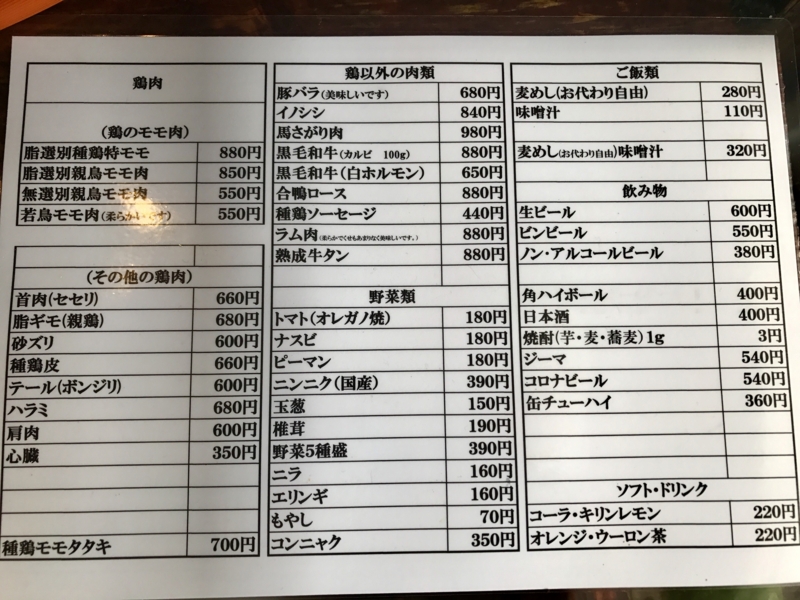 鶏肉
(鶏のモモ肉)
脂選別種鶏特モモ 880円
脂選別親鳥モモ肉 850円
無選別親鳥モモ肉 550円
若鳥モモ肉(柔らかいです) 550円
(その他の鶏肉)
首肉(セセリ) 660円
脂ギモ(親鶏) 680円
砂ズリ 600円
種鶏皮 660円
テール(ボンジリ) 600円
ハラミ 680円
肩肉 600円
心臓 350円
種鶏モモタタキ 700円
鶏以外の肉類
豚バラ(美味しいです) 680円
イノシシ 840円
馬さがり肉 980円
黒毛和牛(カルビ 100g) 880円
黒毛和牛(白ホルモン) 650円
合鴨ロース 880円
種鶏ソーセージ 440円
ラム肉(柔らかでくせもあまりなく美味しいです。) 880円
熟成牛タン 880円
野菜類
トマト(オレガノ焼) 180円
ナスビ 180円
ピーマン 180円
ニンニク(国産) 390円
玉葱 150円
椎茸 190円
野菜5種盛 390円
ニラ 160円
エリンギ 160円
もやし 70円
コンニャク 350円
ご飯類
麦めし(お代わり自由) 280円
味噌汁 110円
麦めし(お代わり自由)味噌汁 320円
飲み物
生ビール 600円
ビンビール 550円
ノン・アルコールビール 380円
角ハイボール 400円
日本酒 400円
焼酎(芋・麦・蕎麦)1g 3円
ジーマ 540円
コロナビール 540円
缶チューハイ 360円
ソフト・ドリンク
コーラ・キリンレモン 220円
オレンジ・ウーロン茶 220円